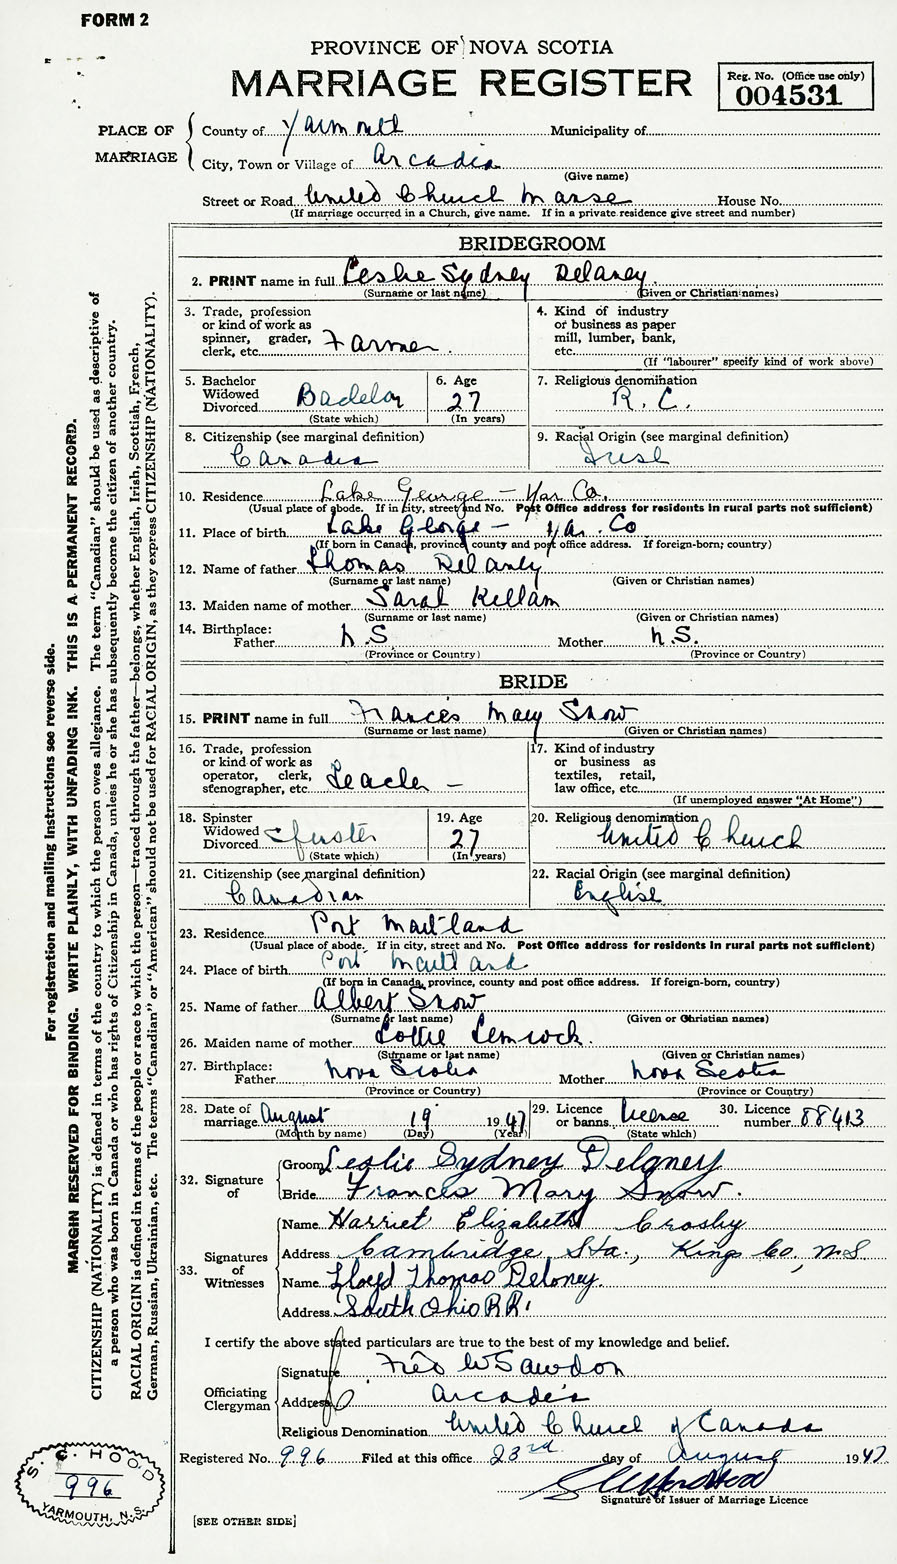 FORM 2
PROVINCE OF NOVA SCOTIA
MARRIAGE REGISTER
Reg. No. (Office use only)
004531
PLACE OF MARRIAGE
County of Yarmouth Municipality of
City, Town or Village of Arcadia
(Give name)
Street or Road United Church Manse House No.
(If marriage occurred in a Church, give name. If in a private residence give street and number)
BRIDEGROOM
2. PRINT name in full Leslie Sydney Delaney
(Surname or last name) (Given or Christian names)
3. Trade, profession or kind of work as spinner, grader, clerk, etc. Farmer.
4. Kind of industry or business as paper mill, lumber, bank, etc.
(If "labourer" specify kind of work above)
5. Bachelor Widowed Divorced Bachelor
(State which)
6. Age 27
(In years)
7. Religious denomination
R. C.
8. Citizenship (see marginal definition)
Canadia
9. Racial Origin (see marginal definition)
Irish
10. Residence Lake George - Yar Co.
(Usual place of abode. If in city, street and No. Post Office address for residents in rural parts not sufficient)
11. Place of birth Lake George - Yar. Co
(If born in Canada, province, county and post office address. If foreign-born; country)
12. Name of father Thomas Delaney
(Surname or last name) (Given or Christian names)
13. Maiden name of mother Sarah Kellam
(Surname or last name) (Given or Christian names)
14. Birthplace: Father N.S. Mother N.S.
(Province or Country) (Province or Country)
BRIDE
15. PRINT name in full Frances Mary Snow
(Surname or last name) (Given or Christian names)
16. Trade, profession or kind of work as operator, clerk, stenographer, etc. Teacher -
17. Kind of industry or business as textiles, retail, law office, etc.
(If unemployed answer "At Home")
18. Spinster Widowed Divorced Spinster
(State which)
19. Age 27
(In years)
20. Religious denomination
United Church
21. Citizenship (see marginal definition)
Canadian
22. Racial Origin (see marginal definition)
English
23. Residence Port Maitland
(Usual place of abode. If in city, street and No. Post Office address for residents in rural parts not sufficient)
24. Place of birth Port Maitland
(If born in Canada, province, county and post office address. If foreign-born, country)
25. Name of father Albert Snow
(Surname or last name) (Given or Christian names)
26. Maiden name of mother Lottie
(Surname or last name) (Given or Christian names)
27. Birthplace: Father Nova Scotia Mother Nova Scotia
(Province or Country) (Province or Country)
28. Date of marriage August 19 1947
(Month by name) (Day) (Year)
29. Licence or banns Licence
(State which)
30. Licence number 88413
32. Signature of
Groom Leslie Sydney Delaney
Bride Frances Mary Snow.
33. Signatures of Witnesses
Name Harriet Elizabeth Crosby
Address Cambridge Sta., Kings Co, N.S
Name Lloyd Thomas Delaney.
Address South Ohio RR1
I certify the above stated particulars are true to the best of my knowledge and belief.
Officiating Clergyman
Signature Fred W Sawdon
Address Arcadia
Religious Denomination United Church of Canada
Registered No. 996 Filed at this office 23rd day of August 1947
Signature of Issuer of Marriage Licence
[SEE OTHER SIDE]
S. C. HOOD
996
YARMOUTH, N.S.
For registration and mailing instructions see reverse side.
MARGIN RESERVED FOR BINDING. WRITE PLAINLY, WITH UNFADING INK. THIS IS A PERMANENT RECORD.
CITIZENSHIP (NATIONALITY) is defined in terms of the country to which the person owes allegiance. The term "Canadian" should be used as descriptive of
a person who was born in Canada or who has rights of Citizenship in Canada, unless he or she has subsequently become the citizen of another country.
RACIAL ORIGIN is defined in terms of the people or race to which the person—traced through the father—belongs, whether English, Irish, Scottish, French,
German, Russian, Ukrainian, etc. The terms "Canadian" or "American" should not be used for RACIAL ORIGIN, as they express CITIZENSHIP (NATIONALITY).